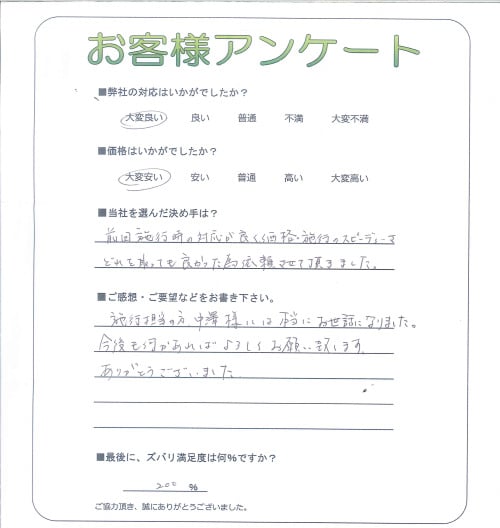 お客様アンケート
■弊社の対応はいかがでしたか？
大変良い 良い 普通 不満 大変不満
■価格はいかがでしたか？
大変安い 安い 普通 高い 大変高い
■当社を選んだ決め手は？
前回施行時の対応が良く、価格・施行のスピーディーさ
どれを取っても良かった為依頼させて頂きました。
■ご感想・ご要望などをお書き下さい。
施行担当の方、中澤様には本当にお世話になりました。
今後も何かあればよろしくお願い致します。
ありがとうございました
■最後に、ズバリ満足度は何％ですか？
200 %
ご協力頂き、誠にありがとうございました。